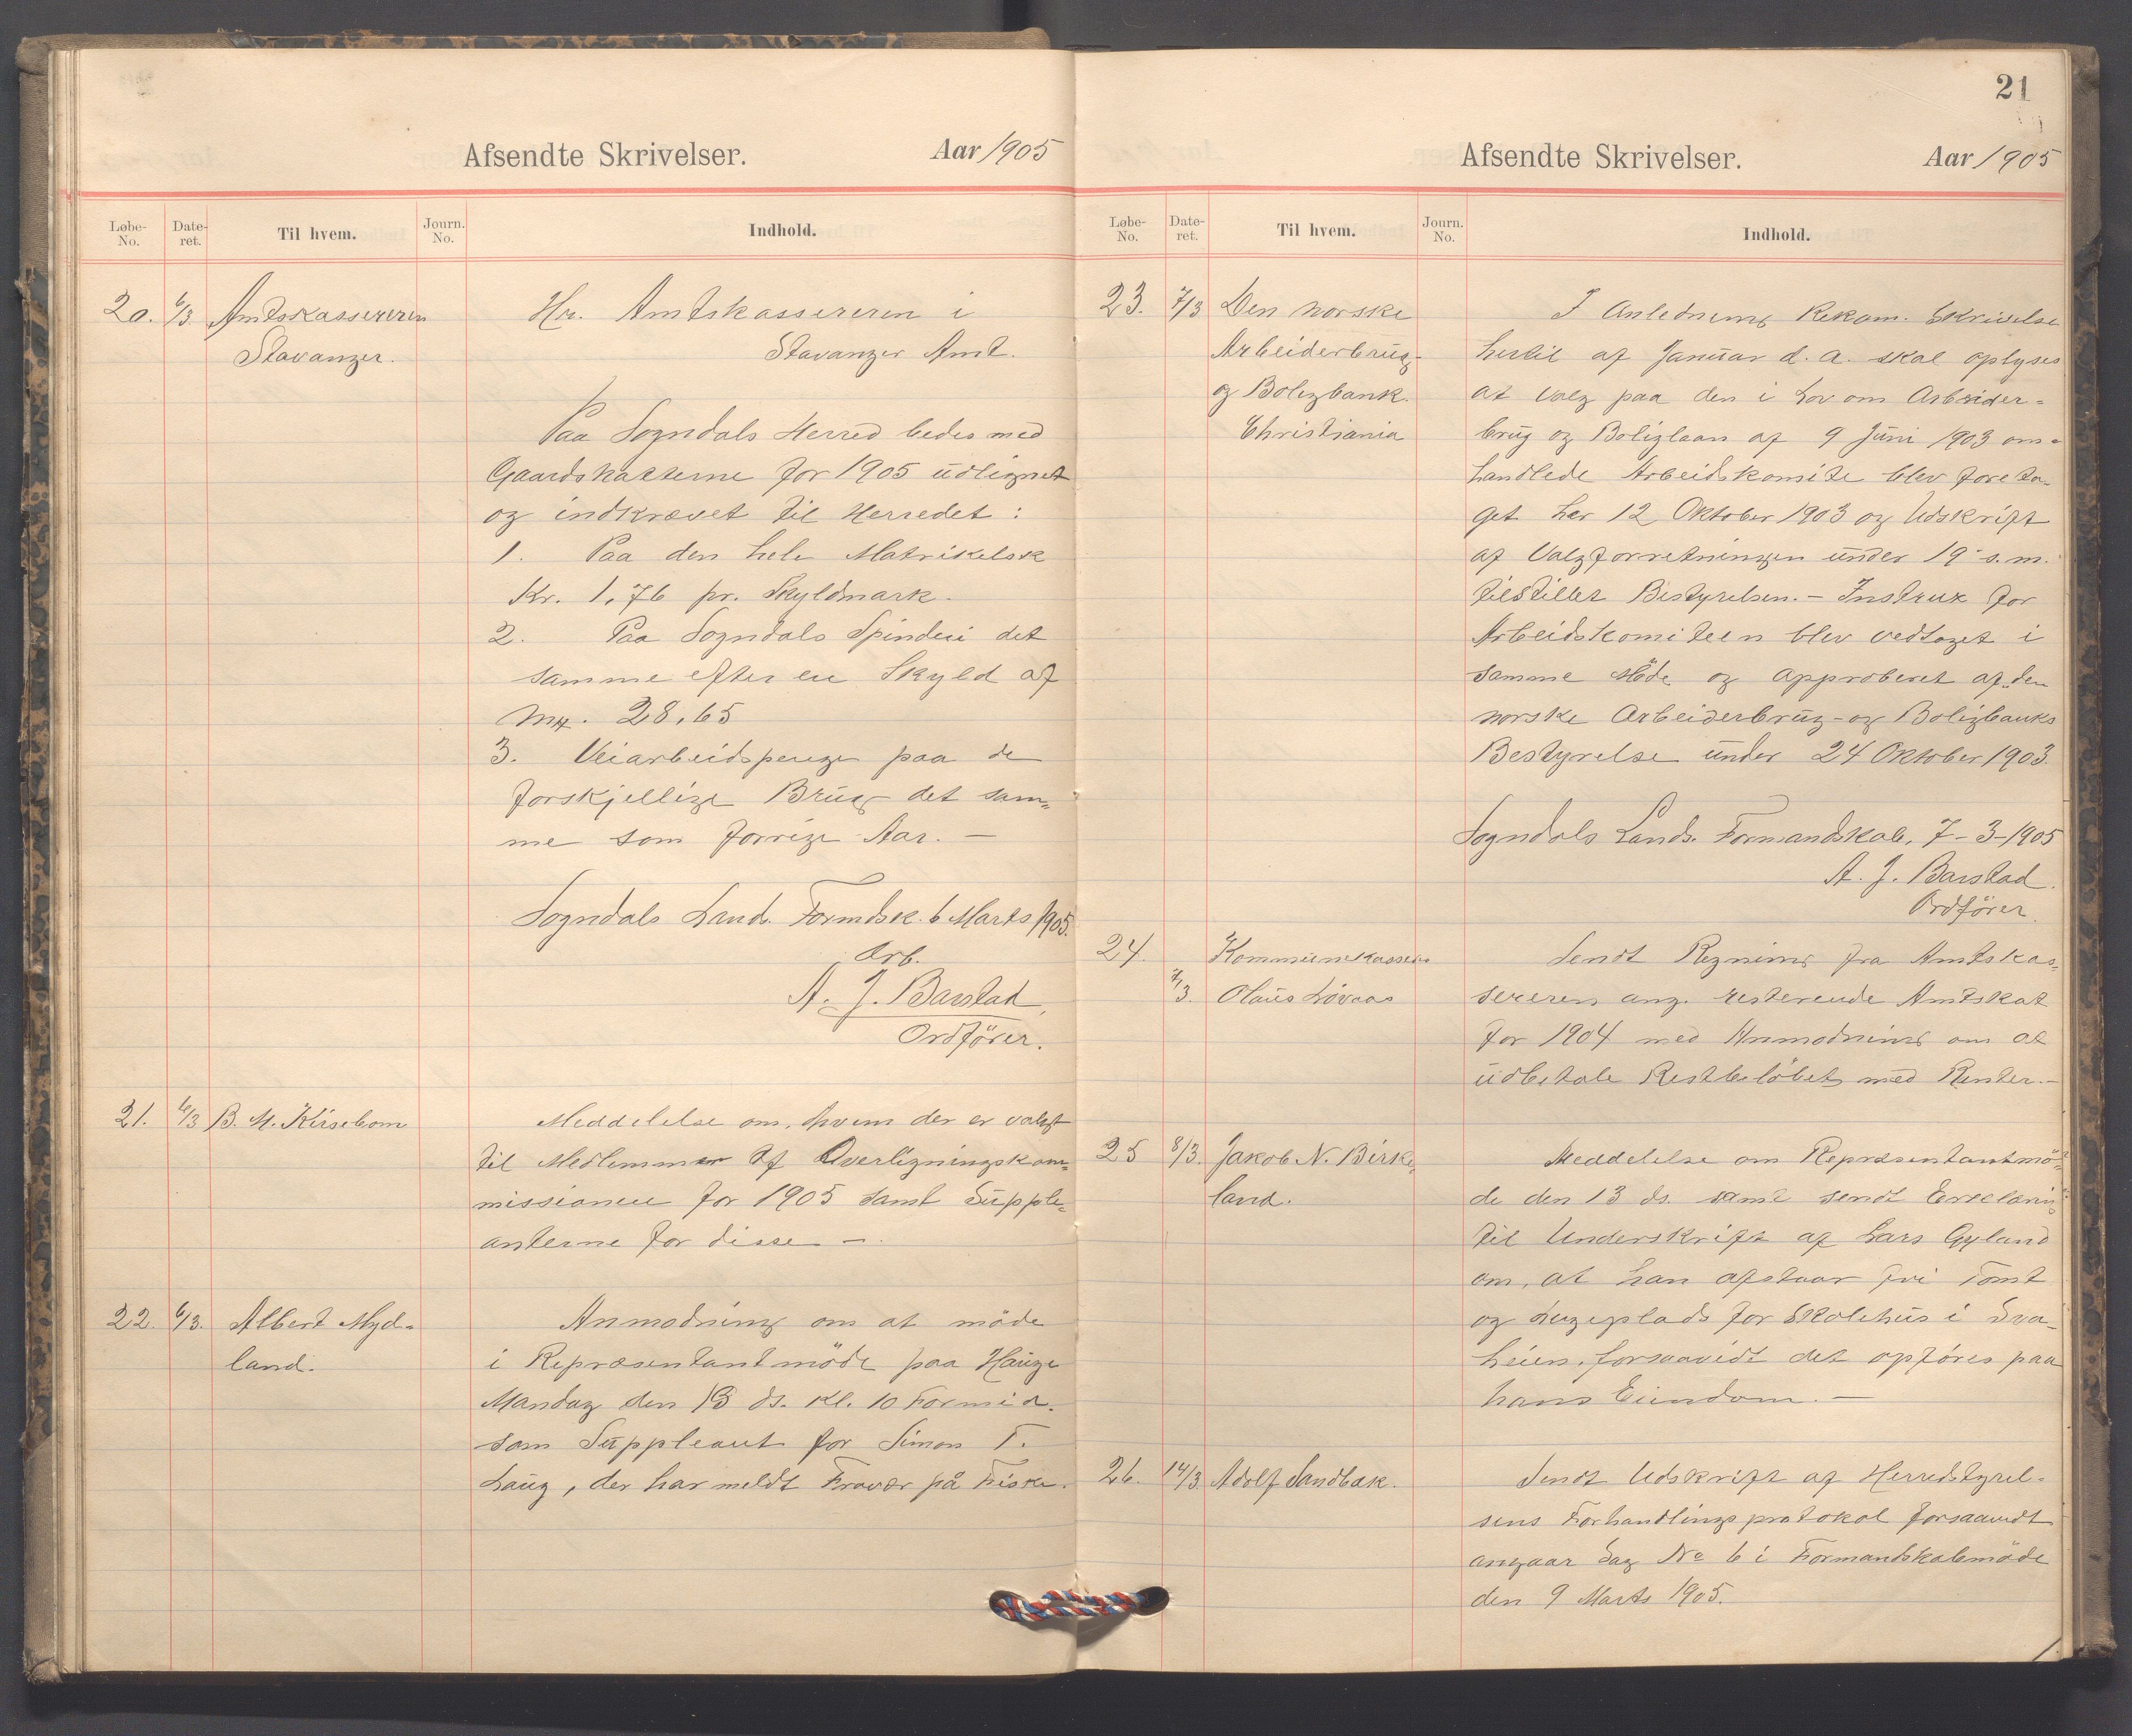 Afsendte Skrivelser. Aar 1905
Løbe-No. Date-ret. Til hvem. Journ. No. Indhold.
20. 6/3 Amtskassereren Hr. Amtskassereren i
Stavanger. Stavanger Amt.
Paa Sogndals Herred bedes med
Gaardskatterne for 1905 udlignet
og indkrævet til Herredet:
1. Paa den hele Matrikelsk
Kr. 1,76 pr. Skyldmark.
2. Paa Sogndals Spinderi det
samme efter en Skyld af
Mk. 28,65
3. Veiarbeidspenge paa de
forskjellige Brug det sam-
me som forrige Aar. —
Sogndals Land. Formdsk. 6 Marts 1905.
Arb.
A. J. Barstad,
Ordfører.
21. 6/3 B. M. Kirsebom Meddelelse om, hvem der er valgt
til Medlemmer af Overligningskom-
missionen for 1905 samt Supple-
anterne for disse —.
22. 6/3. Albert Myd- Anmodning om at möde
land. i Repræsentantmöde paa Hauge
Mandag den 13 ds. Kl. 10 Formid.
som Suppleant for Simon T.
Laug, der har meldt Fravær på Fiske.
21
Afsendte Skrivelser. Aar 1905
Løbe-No. Date-ret. Til hvem. Journ. No. Indhold.
23. 7/3 Den norske I Anledning Rekom. Skrivelse
Arbeiderbrug- hertil af Januar d. A. skal oplyses
og Boligbank. at Valg paa den i Lov om Arbeider-
Christiania brug og Boliglaan af 9 Juni 1903 om-
handlede Arbeidskomite blev foreta-
get her 12 Oktober 1903 og Udskrift
af Valgforretningen under 19 s. m.
tilstillet Bestyrelsen. — Instrux for
Arbeidskomiteen blev vedtaget i
samme Möde og approberet af „den
norske Arbeiderbrug- og Boligbanks
Bestyrelse under 24 Oktober 1903.
Sogndals Lands. Formandskab, 7-3-1905
A. J. Barstad.
Ordförer.
24. Kommunekasser. Sendt Regning fra Amtskas-
7/3. Olaus Lövaas sereren ang. resterende Amtskat
for 1904 med Anmodning om at
udbetale Restbelöbet med Renter. —
25 8/3. Jakob N. Birke- Meddelelse om Repræsentantmö-
land. de den 13 ds. samt sendt Erklæring
til Underskrift af Lars Gyland
om, at han afstaar fri Tomt
og Legeplads for Skolehus i Sva-
heien, forsaavidt det opföres paa
hans Eiendom. —
26. 14/3. Adolf Sandbæk. Sendt Udskrift af Herredstyrel-
sens Forhandlingsprotokol forsaavidt
angaar Sag No 6 i Formandskabmöde
den 9 Marts 1905.